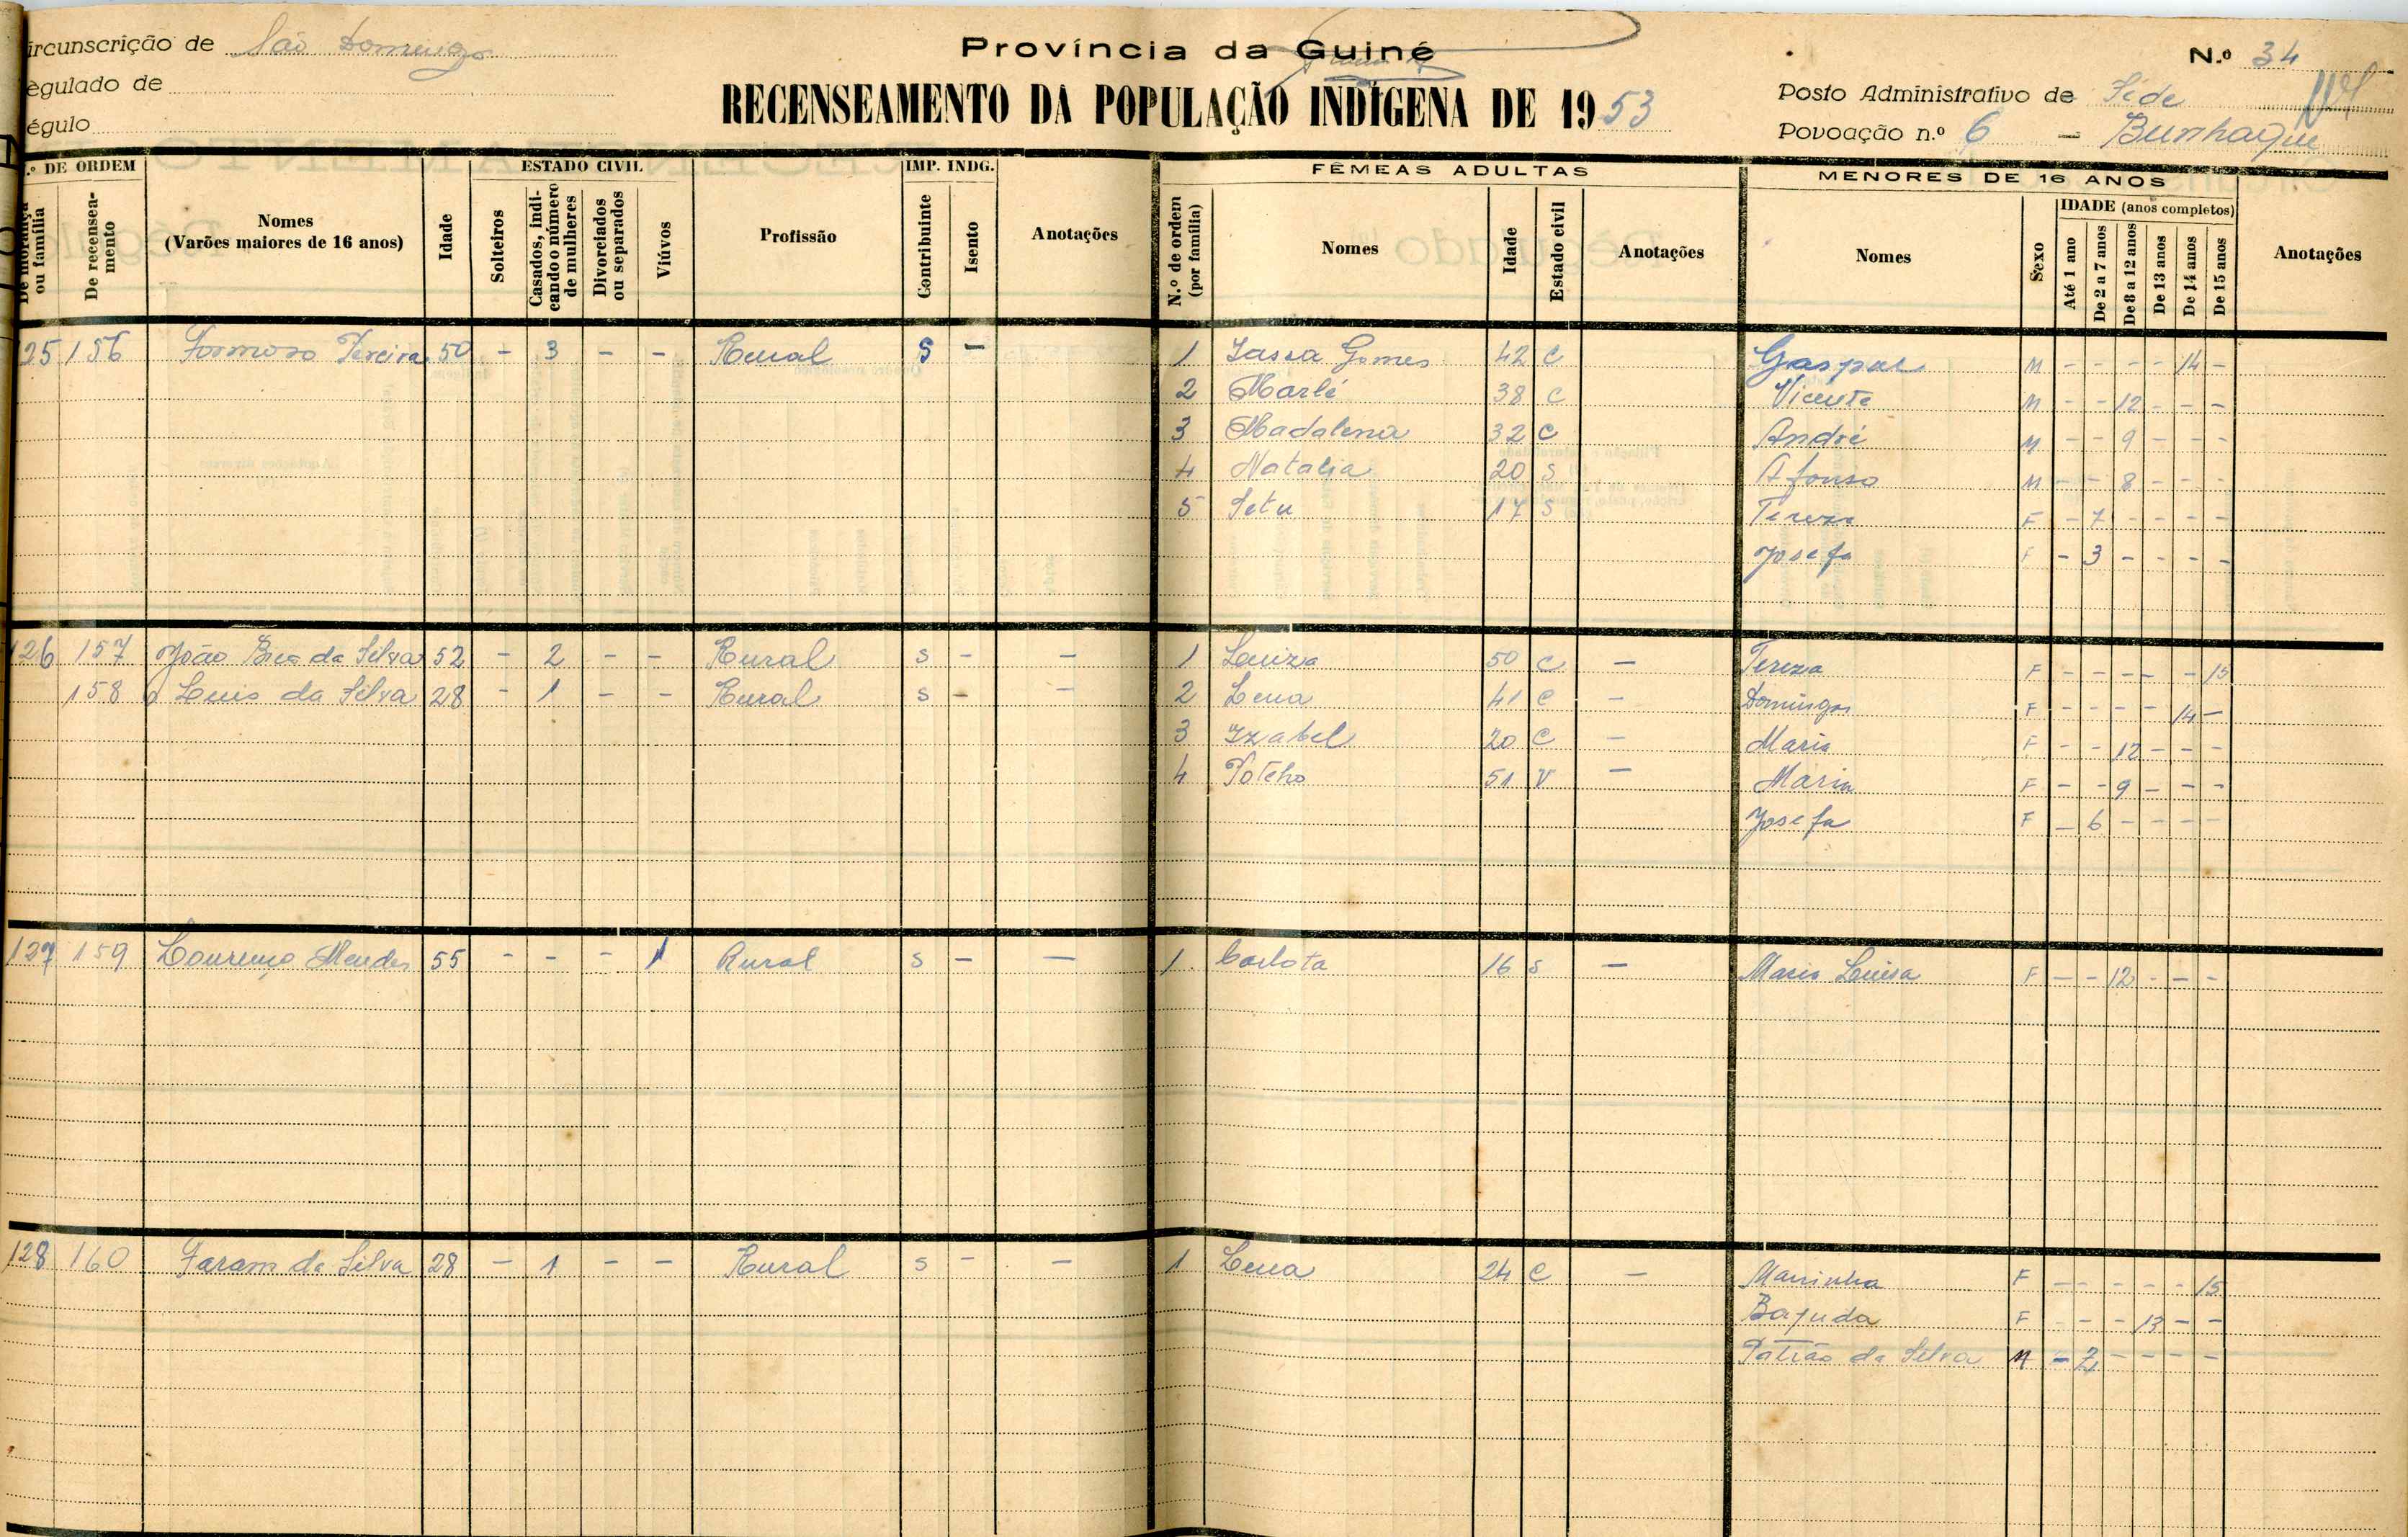 ircunscrição de São Domingos
Província da Guiné
N.º 34
egulado de
RECENSEAMENTO DA POPULAÇÃO INDÍGENA DE 1953
Posto Administrativo de Sede
égulo
Povoação n.º 6 — Bunhaque
.º DE ORDEM
ESTADO CIVIL
IMP. INDG.
FÊMEAS ADULTAS
MENORES DE 16 ANOS
De morança ou família
De recenseamento
Nomes
(Varões maiores de 16 anos)
Idade
Solteiros
Casados, indicando o número de mulheres
Divorciados ou separados
Viúvos
Profissão
Contribuinte
Isento
Anotações
N.º de ordem (por família)
Nomes
Idade
Estado civil
Anotações
Nomes
Sexo
IDADE (anos completos)
Até 1 ano
De 2 a 7 anos
De 8 a 12 anos
De 13 anos
De 14 anos
De 15 anos
Anotações
25 156 Formoso Pereira 50 - 3 - - Rural S - 1 Gomes 42 C Gaspar M - - - - 14 -
2 Marlé 38 C Vicente M - - 12 - - -
3 Madalena 32 C André M - - 9 - - -
4 Natalia 20 S Afonso M - - 8 - - -
5 17 S Tereza F - 7 - - - -
Josefa F - 3 - - - -
126 157 João da Silva 52 - 2 - - Rural S - - 1 Luiza 50 C - Tereza F - - - - - 15
158 Luis da Silva 28 - 1 - - Rural S - - 2 Lena 41 C - Domingas F - - - - 14 -
3 Izabel 20 C - Maria F - - 12 - - -
4 51 V - Maria F - - 9 - - -
Josefa F - 6 - - - -
127 159 Lourenço Mendes 55 - - - 1 Rural S - - 1 Carlota 16 S - Maria Luisa F - - 12 - - -
128 160 da Silva 28 - 1 - - Rural S - - 1 Lena 24 C - Maninha F - - - - - 15
Bajuda F - - - 13 - -
Patrão da Silva M - 2 - - - -